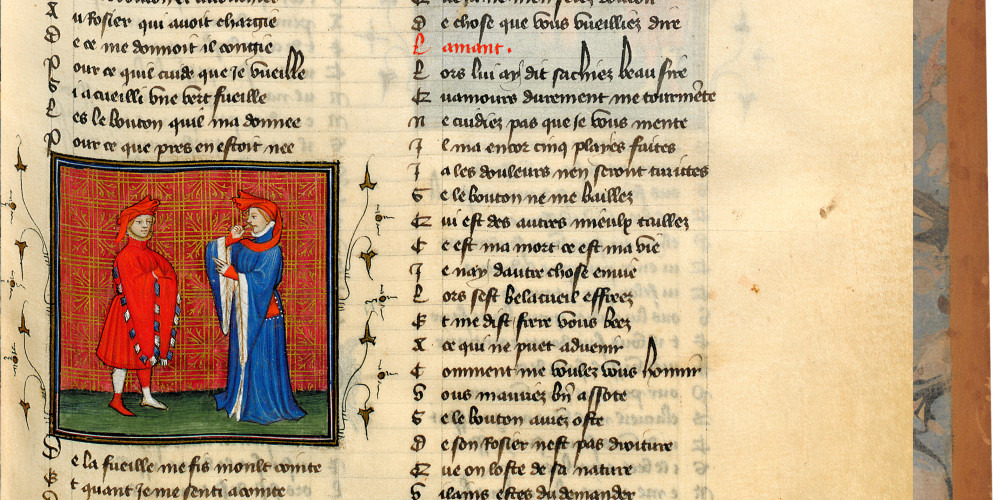 u Rosier qui avoit chargie
D e ce me donnoit il congie
P our ce quil cuide que Je vueille
S i acueilli vne vert fueille
L es le bouton quil ma donnee
P our ce que pres en estoit nee
D e la fueille me fis moult cointe
E t quant Je me senti acointe
D e chose que vous vueilliez dire
L amant.
L ors lui ay dit sachiez beau sire
Q uamours durement me tourmente
N e cuidiez pas que Je vous mente
I l ma encor cinq plaies faites
I a les douleurs nen seront traictes
S e le bouton ne me bailliez
Q ui est des autres mieulx tailliez
C e est ma mort ce est ma vie
I e nay dautre chose enuie
L ors sest belacueil effreez
E t me dist frere vous beez
A ce qui ne puet aduenir
C omment me voulez vous honnir
V ous mauriez bn assote
S e le bouton auiez oste
D e son Rosier nest pas droiture
Q ue on loste de sa nature
V ilains estes du demander